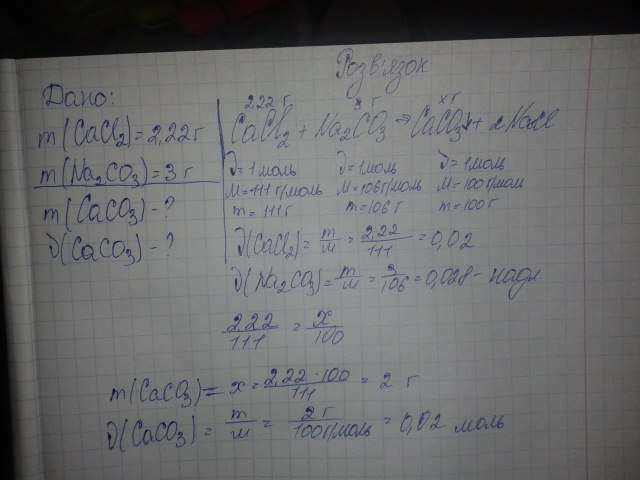 Розв'язок
Дано:
m(CaCl2)=2,22г
m(Na2CO3)=3 г
m(CaCO3)-?
∂(CaCO3)-?
2,22 г г x г
CaCl2 + Na2CO3 → CaCO3 +
∂=1моль ∂=1моль ∂=1моль
M=111 г/моль M=106г/моль M=100г/моль
m=111г m=106г m=100г
∂(CaCl2)= m/M = 2,22/111 = 0,02
∂(Na2CO3)= m/M = 3/106 = 0,028 - надл.
2,22/111 = x/100
m(CaCO3)= x= 2,22·100/111 = 2 г
∂(CaCO3)= m/M = 2г/100г/моль = 0,02 моль